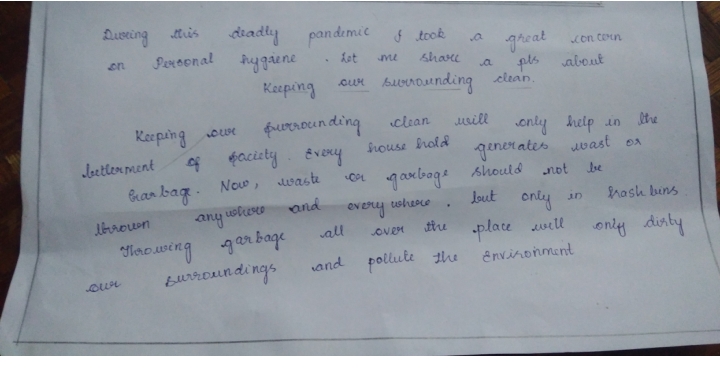 During this deadly pandemic I took a great concern
on Personal hygiene. Let me share a pts about
Keeping our surrounding clean.
Keeping our surrounding clean will only help in the
betterment of society. Every house hold generates wast or
Garbage. Now, waste or garbage should not be
thrown anywhere and everywhere. but only in trash buns
Throwing garbage all over the place will only dirty
our surroundings and pollute the Environment